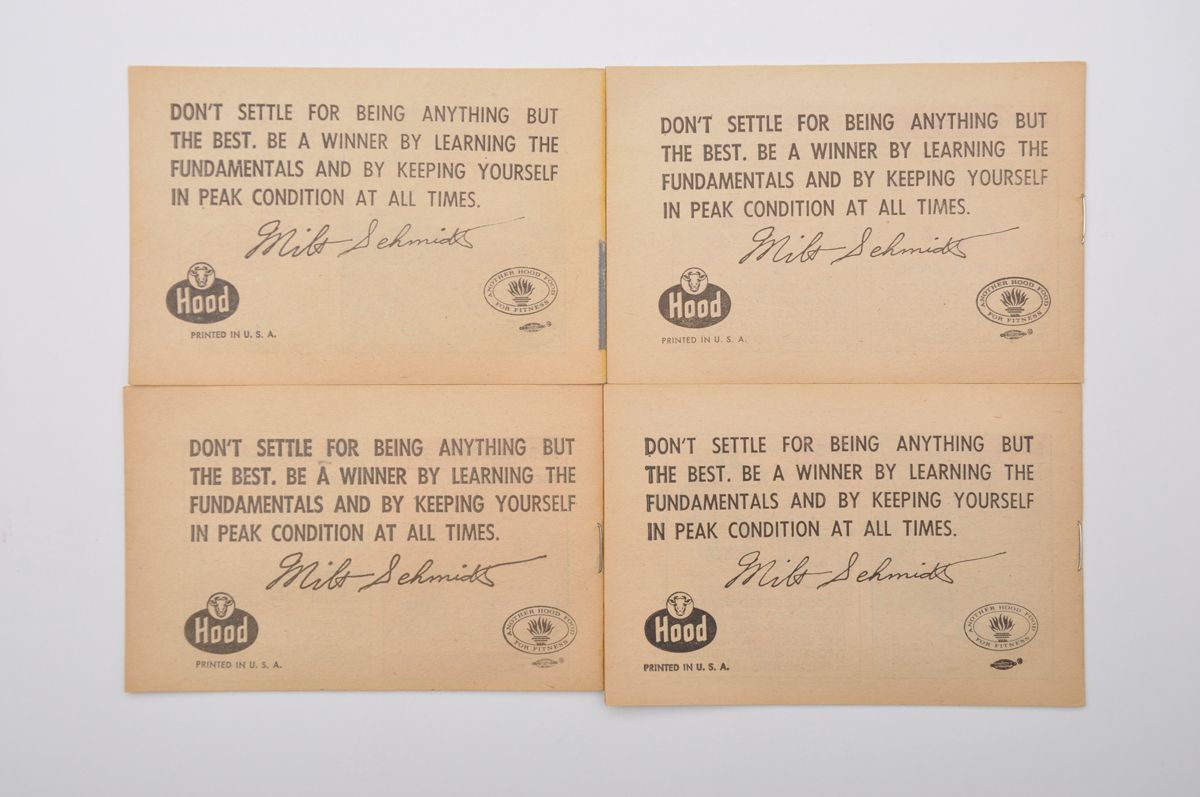 DON'T SETTLE FOR BEING ANYTHING BUT
THE BEST. BE A WINNER BY LEARNING THE
FUNDAMENTALS AND BY KEEPING YOURSELF
IN PEAK CONDITION AT ALL TIMES.
Milt Schmidt
Hood
PRINTED IN U. S. A.
ANOTHER HOOD FOOD
FOR FITNESS
®
DON'T SETTLE FOR BEING ANYTHING BUT
THE BEST. BE A WINNER BY LEARNING THE
FUNDAMENTALS AND BY KEEPING YOURSELF
IN PEAK CONDITION AT ALL TIMES.
Milt Schmidt
Hood
PRINTED IN U. S. A.
ANOTHER HOOD FOOD
FOR FITNESS
®
DON'T SETTLE FOR BEING ANYTHING BUT
THE BEST. BE A WINNER BY LEARNING THE
FUNDAMENTALS AND BY KEEPING YOURSELF
IN PEAK CONDITION AT ALL TIMES.
Milt Schmidt
Hood
PRINTED IN U. S. A.
ANOTHER HOOD FOOD
FOR FITNESS
®
DON'T SETTLE FOR BEING ANYTHING BUT
THE BEST. BE A WINNER BY LEARNING THE
FUNDAMENTALS AND BY KEEPING YOURSELF
IN PEAK CONDITION AT ALL TIMES.
Milt Schmidt
Hood
PRINTED IN U. S. A.
ANOTHER HOOD FOOD
FOR FITNESS
®